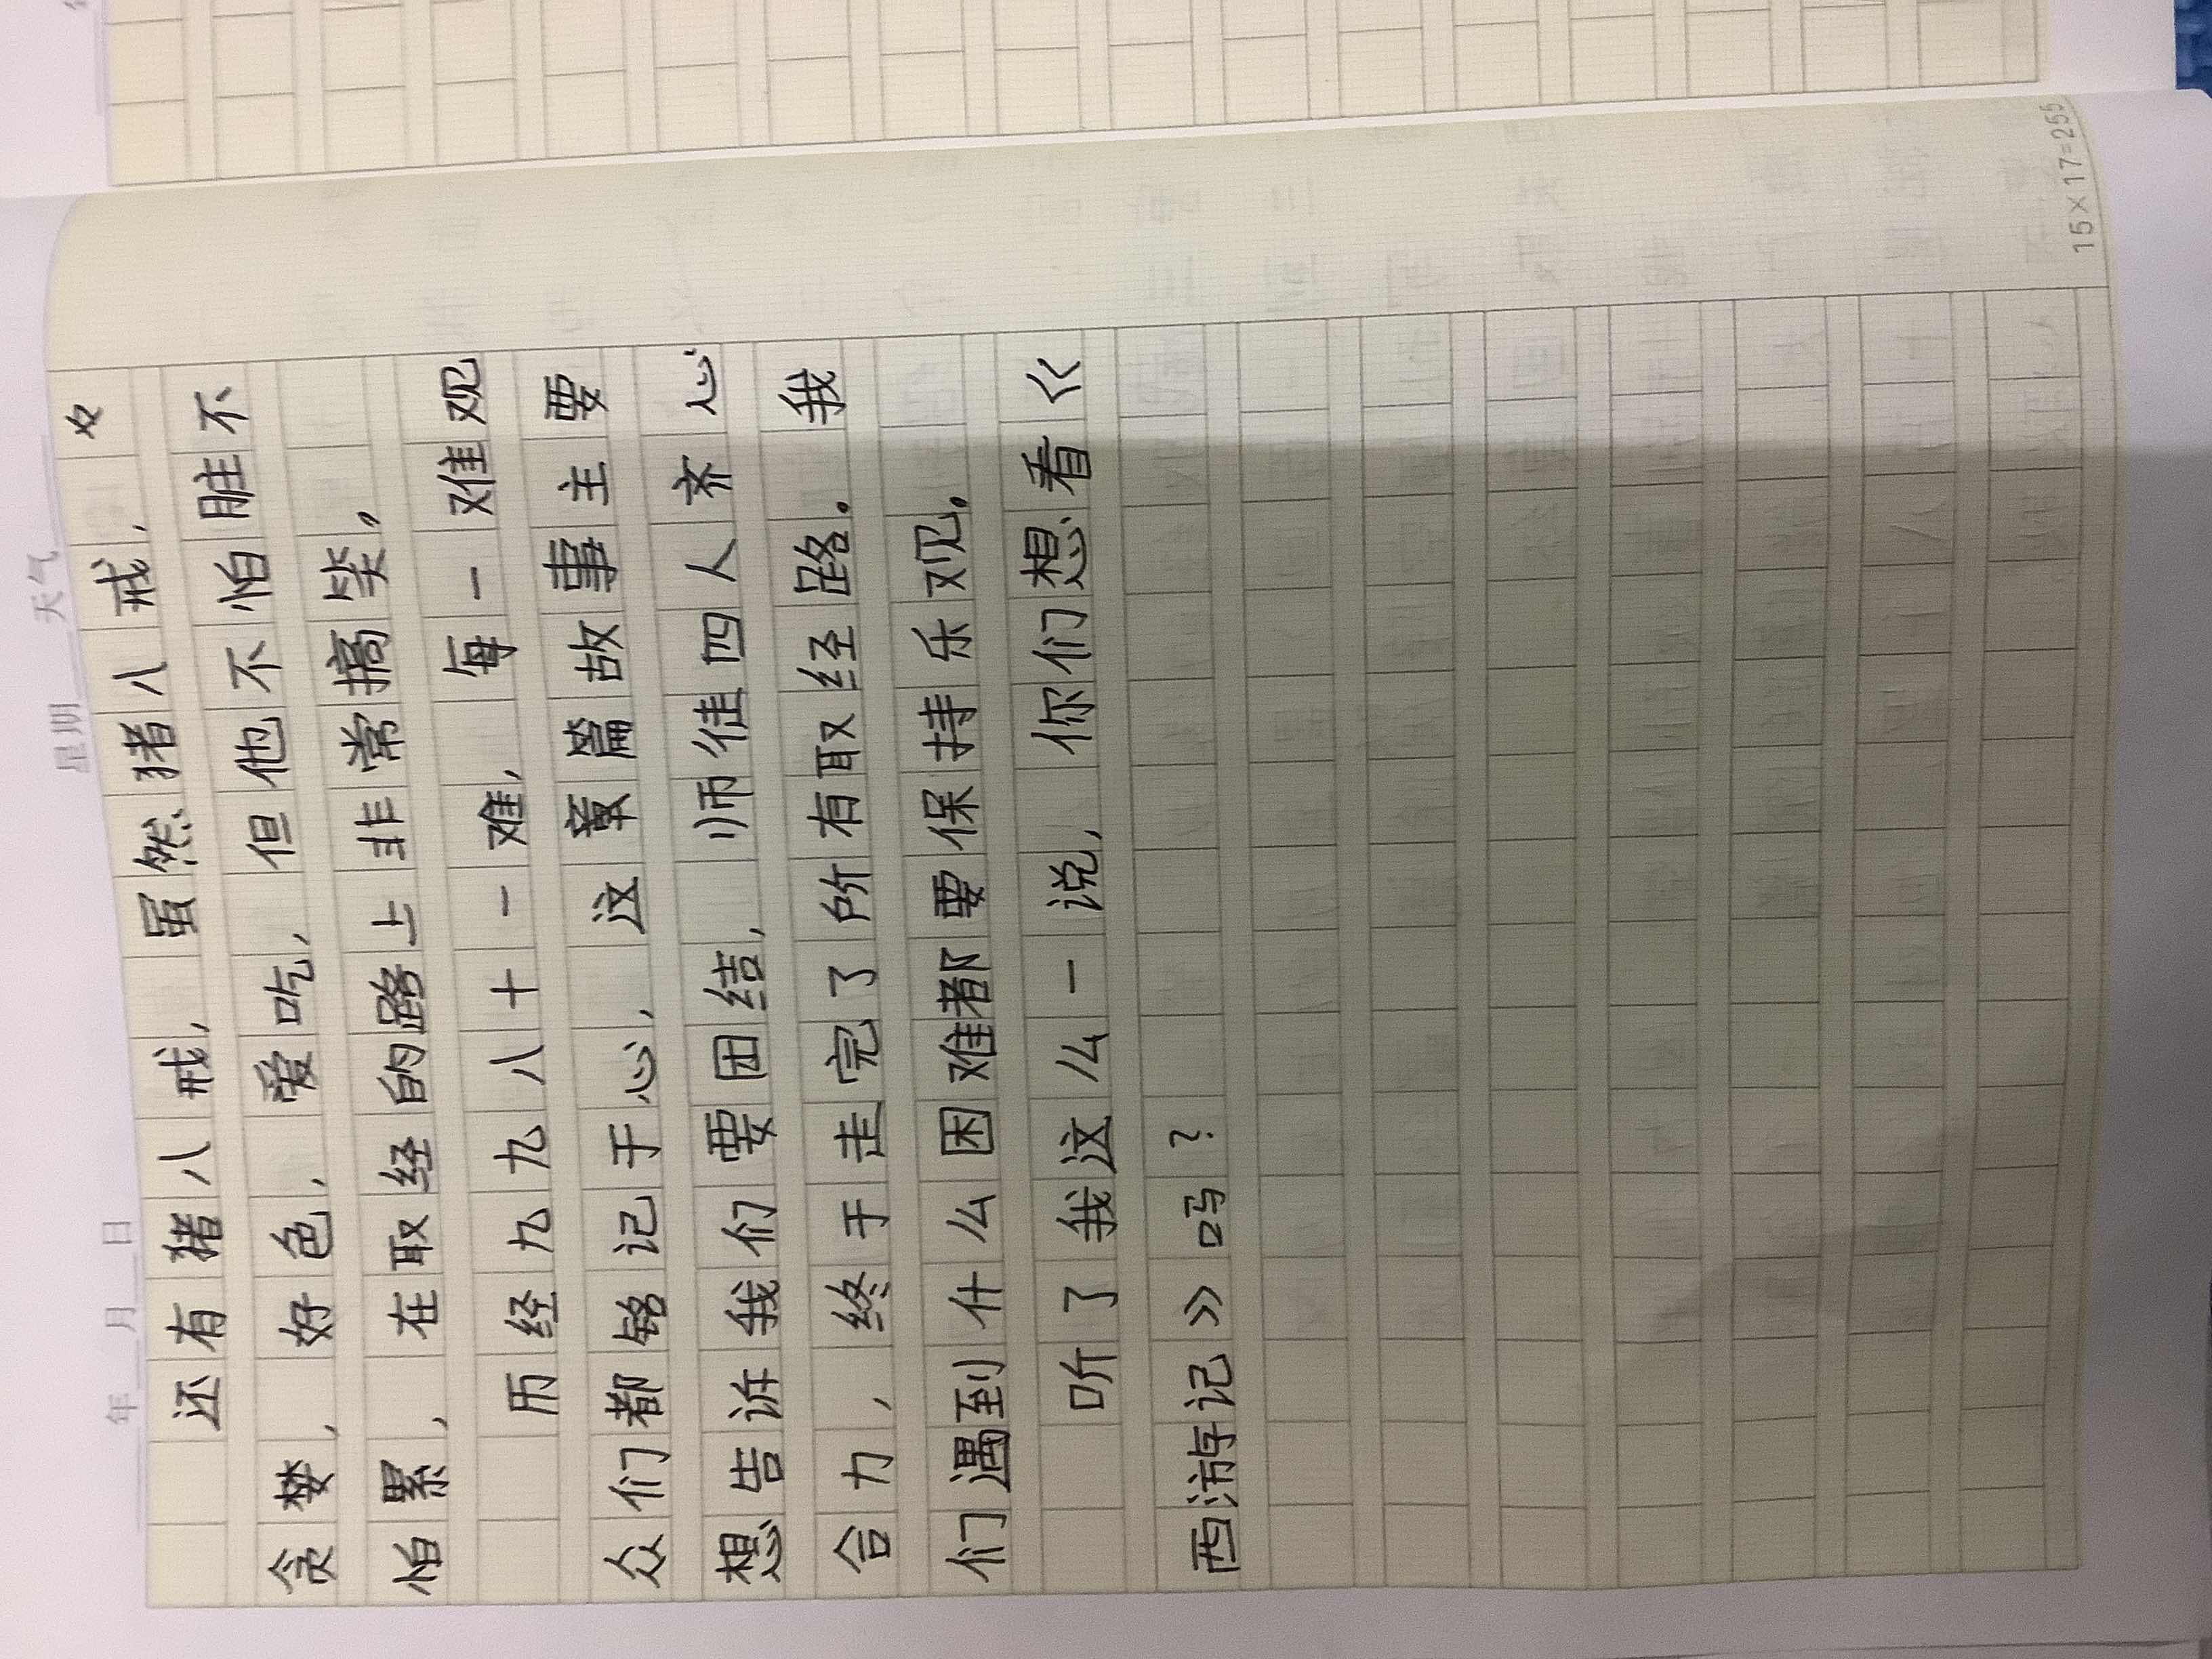 年 月 日 星期 天气
还有猪八戒，虽然猪八戒，
贪婪，好色，爱吃，但他不怕脏不
怕累，在取经的路上非常搞笑。
历经九九八十一难，每一难观
众们都铭记于心，这章篇故事主要
想告诉我们要团结，师徒四人齐心
合力，终于走完了所有取经路。我
们遇到什么困难都要保持乐观。
听了我这么一说，你们想看《
西游记》吗？
15×17=255